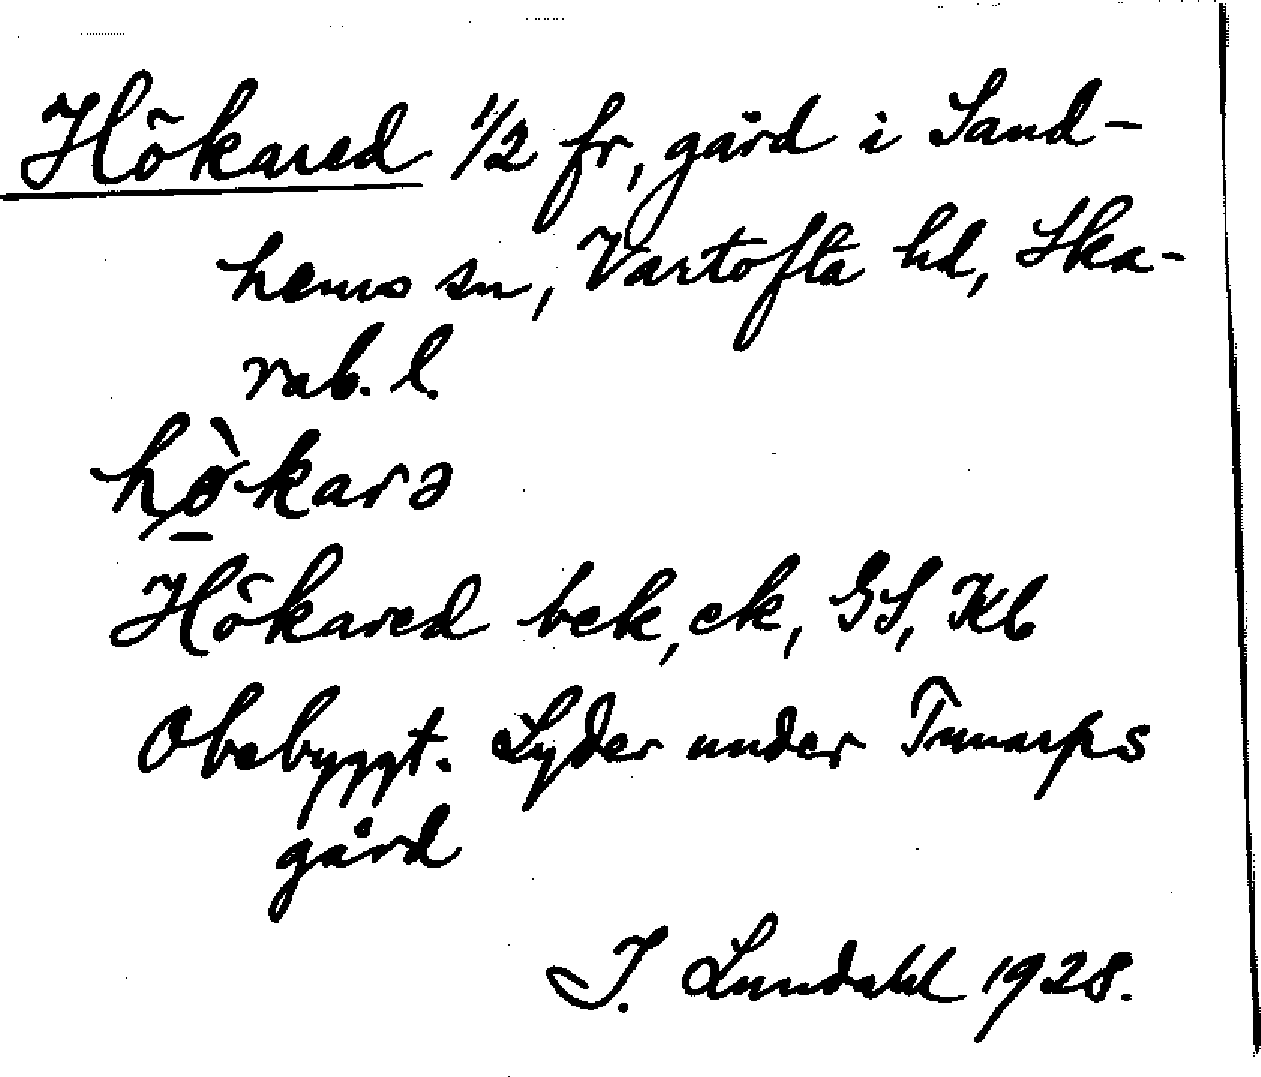 Hökared 1/2 fr, gård i Sand-
hems sn, Vartofta hd, Ska-
rab. l.
hø̀karə
Hökared bek, ek, GS, Kb
Obebyggt. Lyder under Tunarps
gård
I. Lundahl 1928.